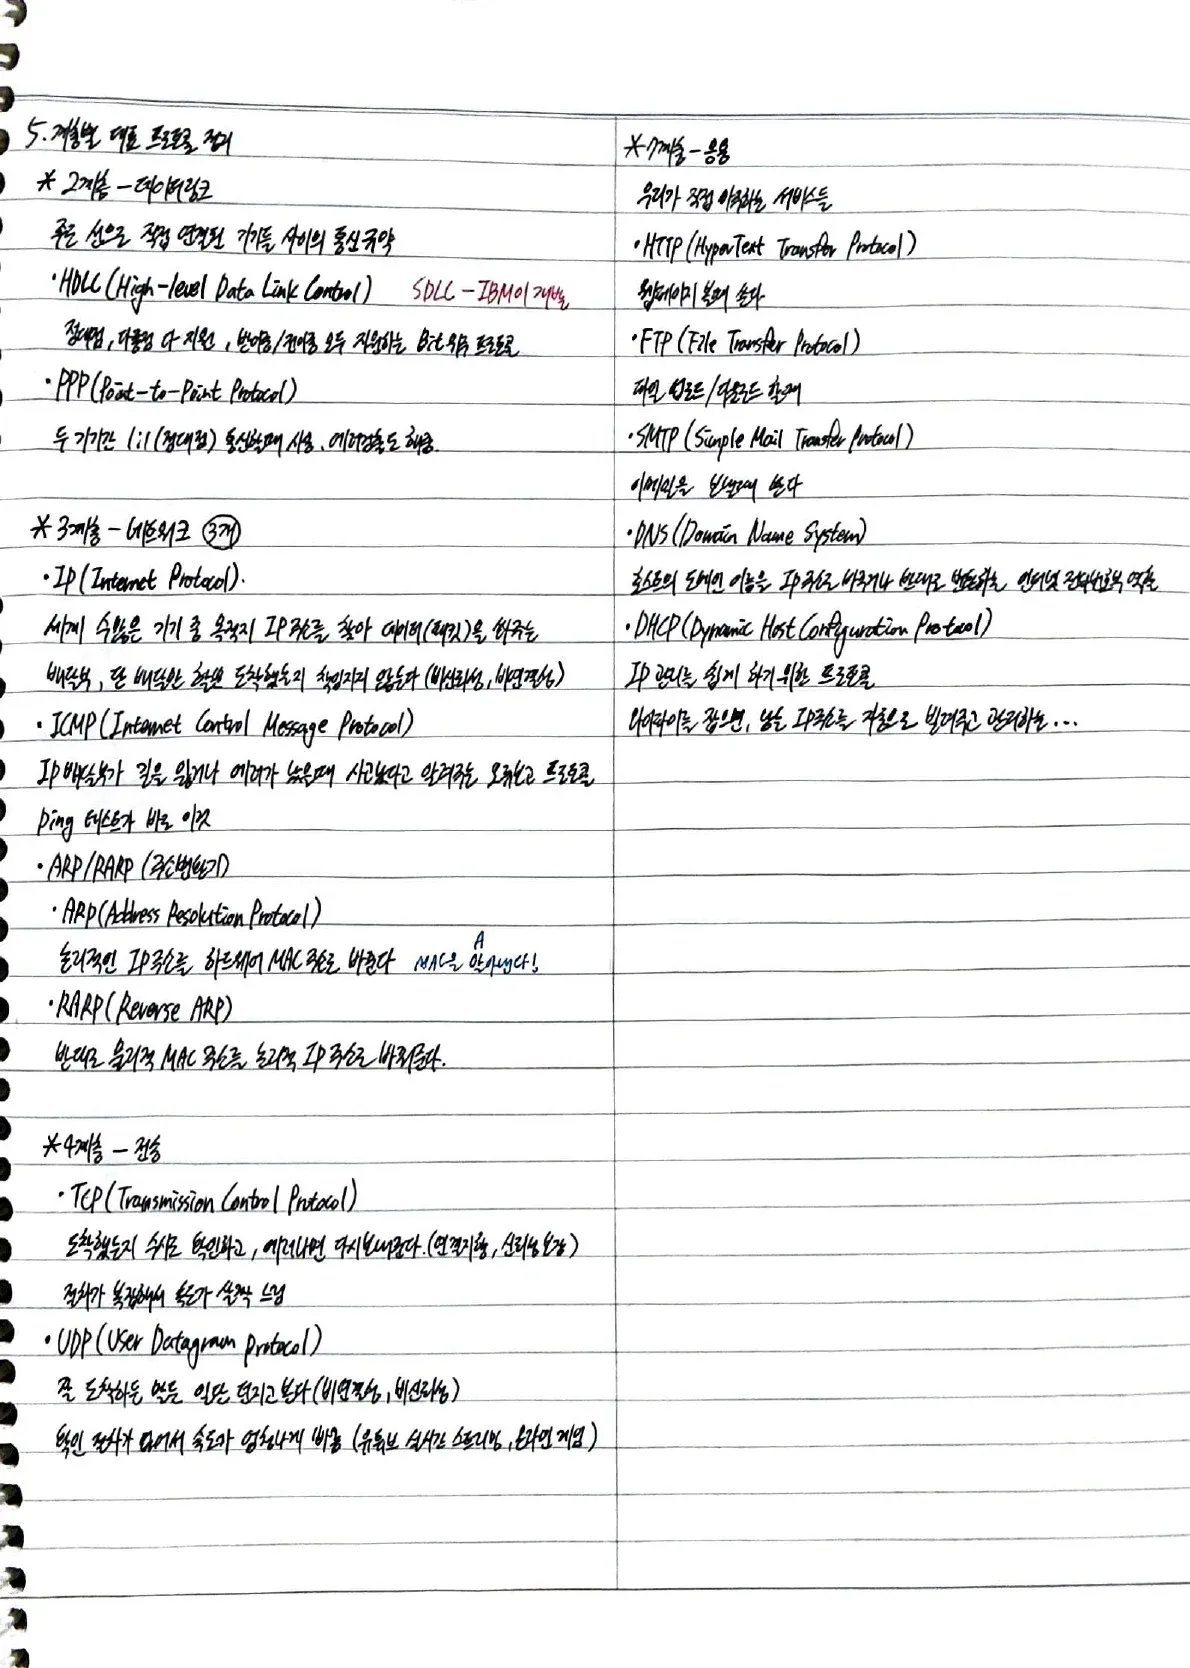 5. 계층별 대표 프로토콜 정리
* 2계층 - 데이터링크
주로 선으로 직접 연결된 기기들 사이의 통신규약
· HDLC (High-level Data Link Control) SDLC - IBM이 개발
점대점, 다중점 다 지원, 반이중/전이중 모두 지원하는 Bit위주 프로토콜
· PPP (Point-to-Point Protocol)
두 기기간 1:1 (점대점) 통신할때 사용, 에러검출도 해줌.
* 3계층 - 네트워크 3개
· IP (Internet Protocol).
세계 수많은 기기 중 목적지 IP주소를 찾아 데이터(패킷)을
배달부, 단 배달만 할뿐 도착했는지 책임지지 않는다 (비신뢰성, 비연결성)
· ICMP (Internet Control Message Protocol)
IP배달부가 길을 잃거나 에러가 났을때 사고났다고 알려주는 오류보고 프로토콜
Ping 테스트가 바로 이것
· ARP/RARP (주소변환기)
· ARP (Address Resolution Protocol)
논리적인 IP주소를 하드웨어 MAC주소로 바꾼다 MAC을 알아낸다!
A
· RARP (Reverse ARP)
반대로 물리적 MAC 주소를 논리적 IP주소로 바꿔준다.
* 4계층 - 전송
· TCP (Transmission Control Protocol)
도착했는지 수시로 확인하고, 에러나면 다시보내준다. (연결지향, 신뢰성보장)
절차가 복잡해서 속도가 살짝 느림
· UDP (User Datagram Protocol)
잘 도착하든 말든 일단 던지고본다 (비연결성, 비신뢰성)
확인 절차가 없어서 속도가 엄청나게 빠름 (유튜브 실시간 스트리밍, 온라인게임)
* 7계층 - 응용
우리가 직접 이용하는 서비스들
· HTTP (HyperText Transfer Protocol)
웹페이지 볼때 쓴다
· FTP (File Transfer Protocol)
파일 업로드/다운로드 할때
· SMTP (Simple Mail Transfer Protocol)
이메일을 보낼때 쓴다
· DNS (Domain Name System)
호스트의 도메인 이름을 IP주소로 바꾸거나 반대로 변환하는 인터넷 전화번호부 역할
· DHCP (Dynamic Host Configuration Protocol)
IP관리를 쉽게 하기 위한 프로토콜
와이파이를 잡으면, 남는 IP주소를 자동으로 빌려주고 관리하는...